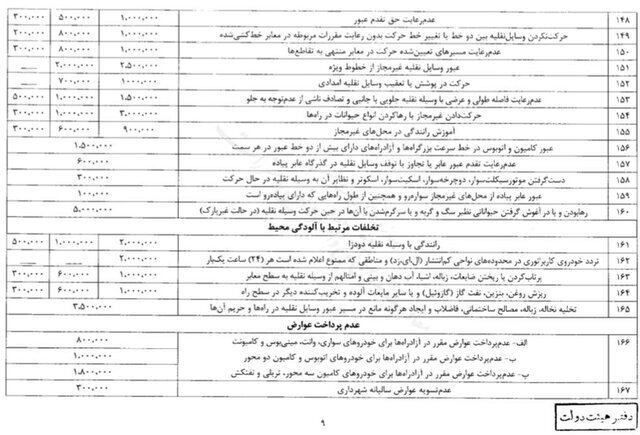 ۱۴۸ عدم‌رعایت حق تقدم عبور ۱,۰۰۰,۰۰۰ ۵۰۰,۰۰۰ ۳۰۰,۰۰۰
۱۴۹ حرکت‌نکردن وسایل‌نقلیه بین دو خط یا تغییر خط حرکت بدون رعایت مقررات مربوطه در معابر خط‌کشی‌شده ۱,۰۰۰,۰۰۰ ۸۰۰,۰۰۰ ۲۰۰,۰۰۰
۱۵۰ عدم‌رعایت مسیرهای تعیین‌شده حرکت در معابر منتهی به تقاطع‌ها ۱,۰۰۰,۰۰۰ ۸۰۰,۰۰۰ ۳۰۰,۰۰۰
۱۵۱ عبور وسایل نقلیه غیرمجاز از خطوط ویژه ۲,۵۰۰,۰۰۰ ۲,۰۰۰,۰۰۰ ـــ
۱۵۲ حرکت در پوشش یا تعقیب وسایل نقلیه امدادی ۱,۰۰۰,۰۰۰ ۷۰۰,۰۰۰ ـــ
۱۵۳ عدم‌رعایت فاصله طولی و عرضی با وسیله نقلیه جلویی یا جانبی و تصادف ناشی از عدم‌توجه به جلو ۱,۵۰۰,۰۰۰ ۱,۰۰۰,۰۰۰ ۵۰۰,۰۰۰
۱۵۴ حرکت‌دادن غیرمجاز یا رهاکردن انواع حیوانات در راه‌ها ۳,۰۰۰,۰۰۰ ۱,۰۰۰,۰۰۰ ۳۰۰,۰۰۰
۱۵۵ آموزش رانندگی در محل‌های غیرمجاز ۹۰۰,۰۰۰ ۶۰۰,۰۰۰ ۳۰۰,۰۰۰
۱۵۶ عبور کامیون و اتوبوس در خط سرعت بزرگراه‌ها و آزادراه‌های دارای بیش از دو خط عبور در هر سمت ۱,۵۰۰,۰۰۰
۱۵۷ عدم‌رعایت تقدم عبور عابر یا تجاوز یا توقف وسایل نقلیه در گذرگاه عابر پیاده ۶۰۰,۰۰۰
۱۵۸ دست‌گرفتن موتورسیکلت‌سوار، دوچرخه‌سوار، اسکیت‌سوار، اسکوتر و نظایر آن به وسیله نقلیه در حال حرکت ۳۰۰,۰۰۰
۱۵۹ عبور عابر پیاده از محل‌های غیرمجاز سواره‌رو و همچنین از طول راه‌هایی که دارای پیاده‌رو است ۱۰۰,۰۰۰
۱۶۰ رهابودن و یا در آغوش گرفتن حیواناتی نظیر سگ و گربه و یا سرگرم‌شدن با آن‌ها در حین حرکت وسیله نقلیه (در حالت غیرپارک) ۵,۰۰۰,۰۰۰
تخلفات مرتبط با آلودگی محیط
۱۶۱ رانندگی با وسیله نقلیه دودزا ۲,۰۰۰,۰۰۰ ۱,۰۰۰,۰۰۰ ۵۰۰,۰۰۰
۱۶۲ تردد خودروی کاربراتوری در محدوده‌های نواحی کم‌انتشار (ال‌ای‌زد) و مناطقی که ممنوع اعلام شده است هر (۲۴) ساعت یک‌بار ۲,۰۰۰,۰۰۰ ـــ ـــ
۱۶۳ پرتاب‌کردن یا ریختن ضایعات، زباله، اشیا، آب دهان و بینی و امثالهم از وسیله نقلیه به سطح معابر ۱,۰۰۰,۰۰۰ ۶۰۰,۰۰۰ ۳۰۰,۰۰۰
۱۶۴ ریزش روغن، بنزین، نفت گاز (گازوئیل) و یا سایر مایعات آلوده و تخریب‌کننده دیگر در سطح راه ۱,۰۰۰,۰۰۰ ۶۰۰,۰۰۰ ۳۰۰,۰۰۰
۱۶۵ تخلیه نخاله، زباله، مصالح ساختمانی، فاضلاب و ایجاد هرگونه مانع در مسیر عبور وسایل نقلیه در راه‌ها و حریم آن‌ها ۳,۵۰۰,۰۰۰
عدم پرداخت عوارض
۱۶۶ الف- عدم‌پرداخت عوارض مقرر در آزادراه‌ها برای خودروهای سواری، وانت، مینی‌بوس و کامیونت ۸۰۰,۰۰۰
ب- عدم‌پرداخت عوارض مقرر در آزادراه‌ها برای خودروهای اتوبوس و کامیون دو محور ۱,۰۰۰,۰۰۰
پ- عدم‌پرداخت عوارض مقرر در آزادراه‌ها برای خودروهای کامیون سه محور، تریلی و نفتکش ۱,۸۰۰,۰۰۰
۱۶۷ عدم‌تسویه عوارض سالیانه شهرداری ۳۰۰,۰۰۰
۹
دفتر هیئت دولت